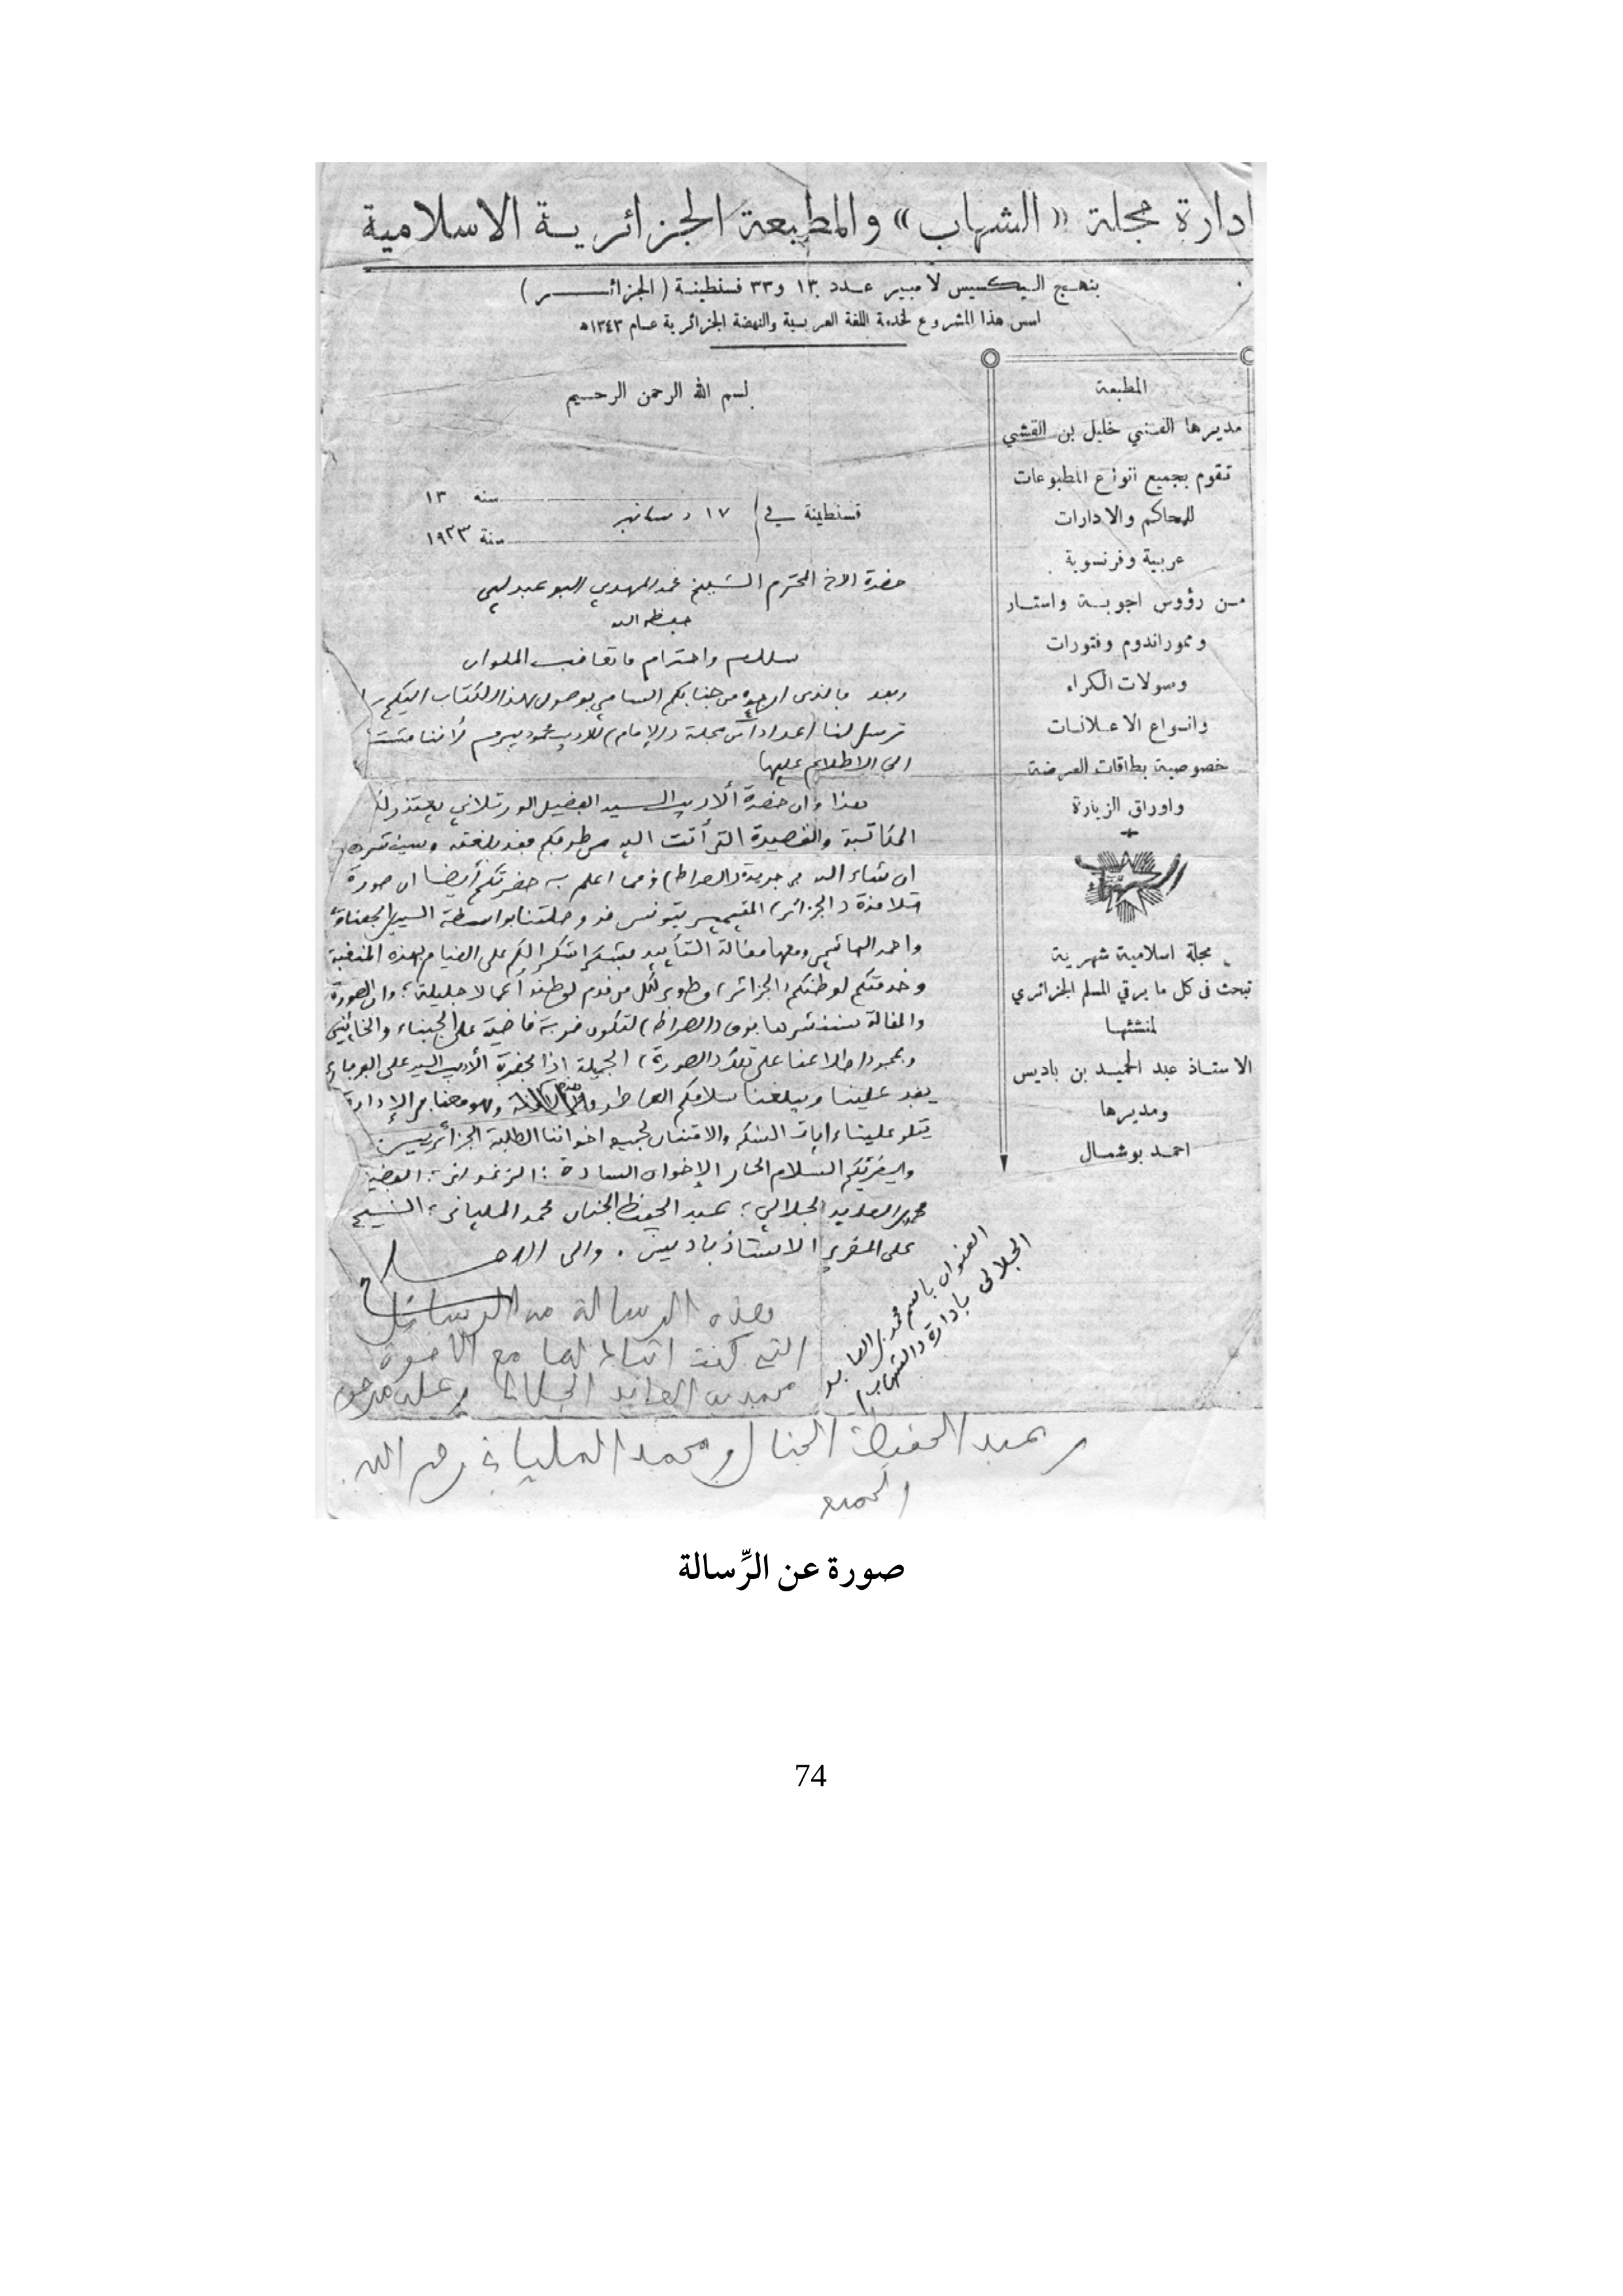 ادارة مجلة «الشهاب» والمطبعة الجزائرية الاسلامية
بنهج اليكسيس لامبير عدد ١٣ و٣٣ قسنطينة (الجزائر)
اسس هذا المشروع لخدمة اللغة العربية والنهضة الجزائرية عام ١٣٤٣ه
المطبعة
مديرها الفني خليل بن القشي
تقوم بجميع انواع المطبوعات
للمحاكم والادارات
عربية وفرنسوية
من رؤوس اجوبة واستار
وموراندوم وفتورات
وسولات الكراء
وانواع الاعلانات
خصوصية بطاقات العرضة
واوراق الزيارة
الشهاب
مجلة اسلامية شهرية
تبحث في كل ما يرقي المسلم الجزائري
لمنشئها
الاستاذ عبد الحميد بن باديس
ومديرها
احمد بوشمال
بسم الله الرحمن الرحيم
سنه ١٣
قسنطينة في ١٧ دسانبر
سنة ١٩٣٣
حضرة الاخ المحترم الشيخ محمد المهدي البوعبدلي
حفظه الله
سلام واحترام ما تعاقب الملوان
وبعد فالذي ارجوه من جنابكم السامي بوصول هذا الكتاب اليكم
ترسل لنا اعدادا من مجلة (الإمام) للأديب محمود بيرم لأننا
الى الاطلاع عليها
هذا وان حضرة الأديب السيد الفضيل الورتلاني يعتذر لك
المكاتبة والقصيدة التي أتت اليه من طرفكم فقد بلغته وسينشره
ان شاء الله في جريدة (الصراط) ومما اعلم به حضرتكم أيضا ان صورة
تلامذة (الجزائر) المقيمين بتونس قد وصلتنا بواسطة السيد الجفناوي
واحمد الهاشمي ومعها مقالة التأييد فشكرا شكرا لكم على القيام بهذه المنقبة
وخدمتكم لوطنكم (الجزائر) وطوبى لكل من قدم لوطنه أعمالا جليلة؛ وان الصورة
والمقالة سننشرها فوق (الصراط) لتكون ضربة قاضية على الجبناء والخائنين
وبمجرد اطلاعنا على تلك (الصورة) الجميلة اذا بحضرة الأديب السيد على
يفد علينا ويبلغنا سلامكم العاطر وهو معنا في الإدارة
يتلو علينا ءايات الشكر والامتنان لجميع اخواننا الطلبة الجزائريين
ويقرئكم السلام الحار الإخوان السادة: الفضيل
محمد العابد الجلالي؛ عبد الحفيظ الجنان محمد المليانى؛ الشيخ
على المقري الاستاذ باديس. والى الله
العنوان باسم محمد العابد
الجلالى بادارة (الشهاب)
هذه الرسالة من الرسائل
التي كنت اتبادلها مع الاخوة
محمد بن العابد الجلالي وعلى مرحوم
وعبد الحفيظ الجنان ومحمد المليانى رحم الله
الجميع
صورة عن الرِّسالة
74